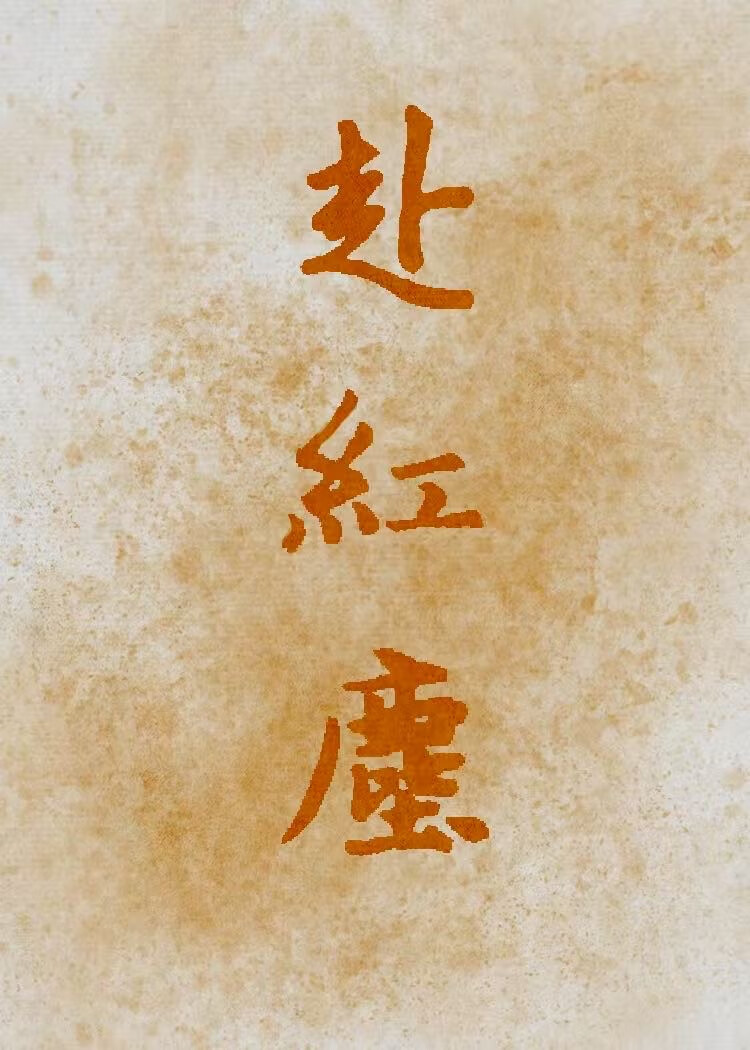 赴紅塵